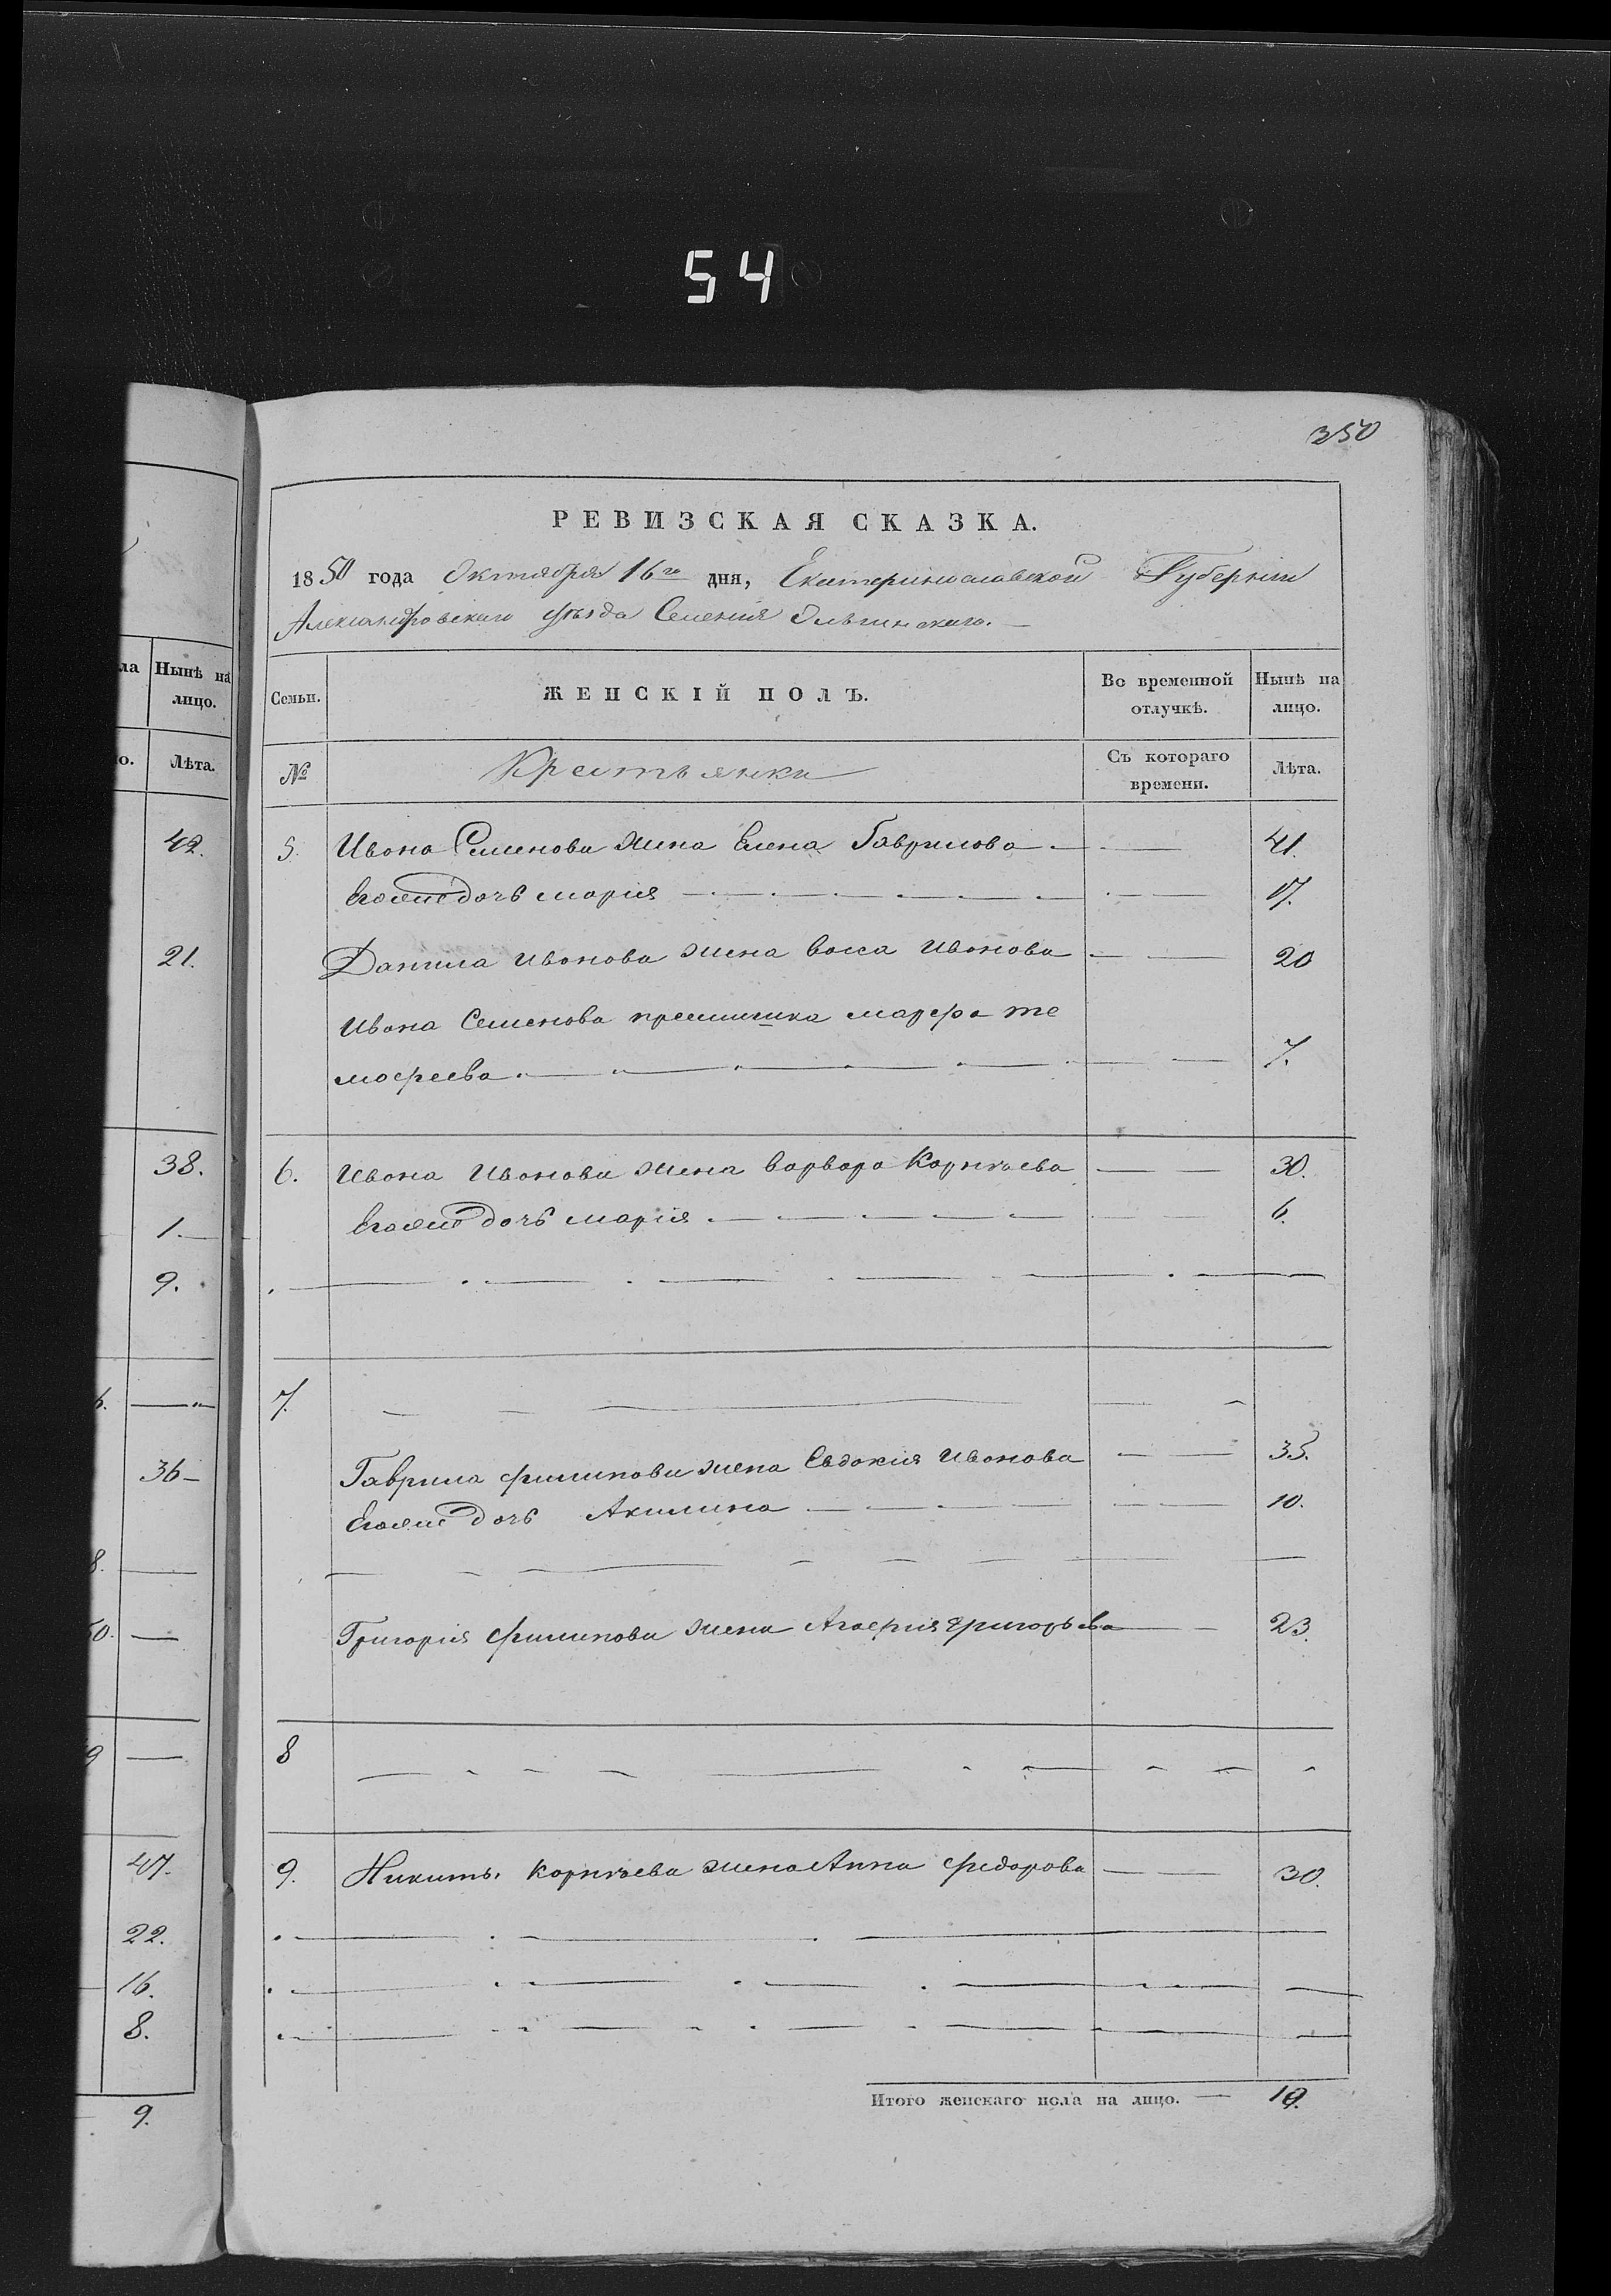 54
350
РЕВИЗСКАЯ СКАЗКА.
1850 года Октября 16го дня, Екатеринославской Губернии
Александровскаго уѣзда Селения Ольгинскаго.
ла
Нынѣ на лицо.
о.
Лѣта.
42.
21.
38.
1.
9.
6.
36
8.
50.
9
47.
22.
16.
8.
9.
Семьи.
ЖЕНСКІЙ ПОЛЪ.
Во временной отлучкѣ.
Нынѣ на лицо.
№
Крестьянки
Съ котораго времени.
Лѣта.
5. Ивона Семенова жена Елена Гаврилова 41.
Егоже дочь мария 17.
Данила Ивонова жена васса Ивонова 20
Ивона Семенова приемишка марфа те
мофеева 7.
6. Ивона Ивонова жена варвара Корнѣева 30.
Егоже дочь марія 6.
7.
Гаврила филипова жена Евдокия Ивонова 35.
Егоже дочь Акилина 10.
Григория филипова жена Агафия григорьева 23.
8
9. Никиты Корнѣева жена Анна федорова 30.
Итого женскаго пола на лицо.